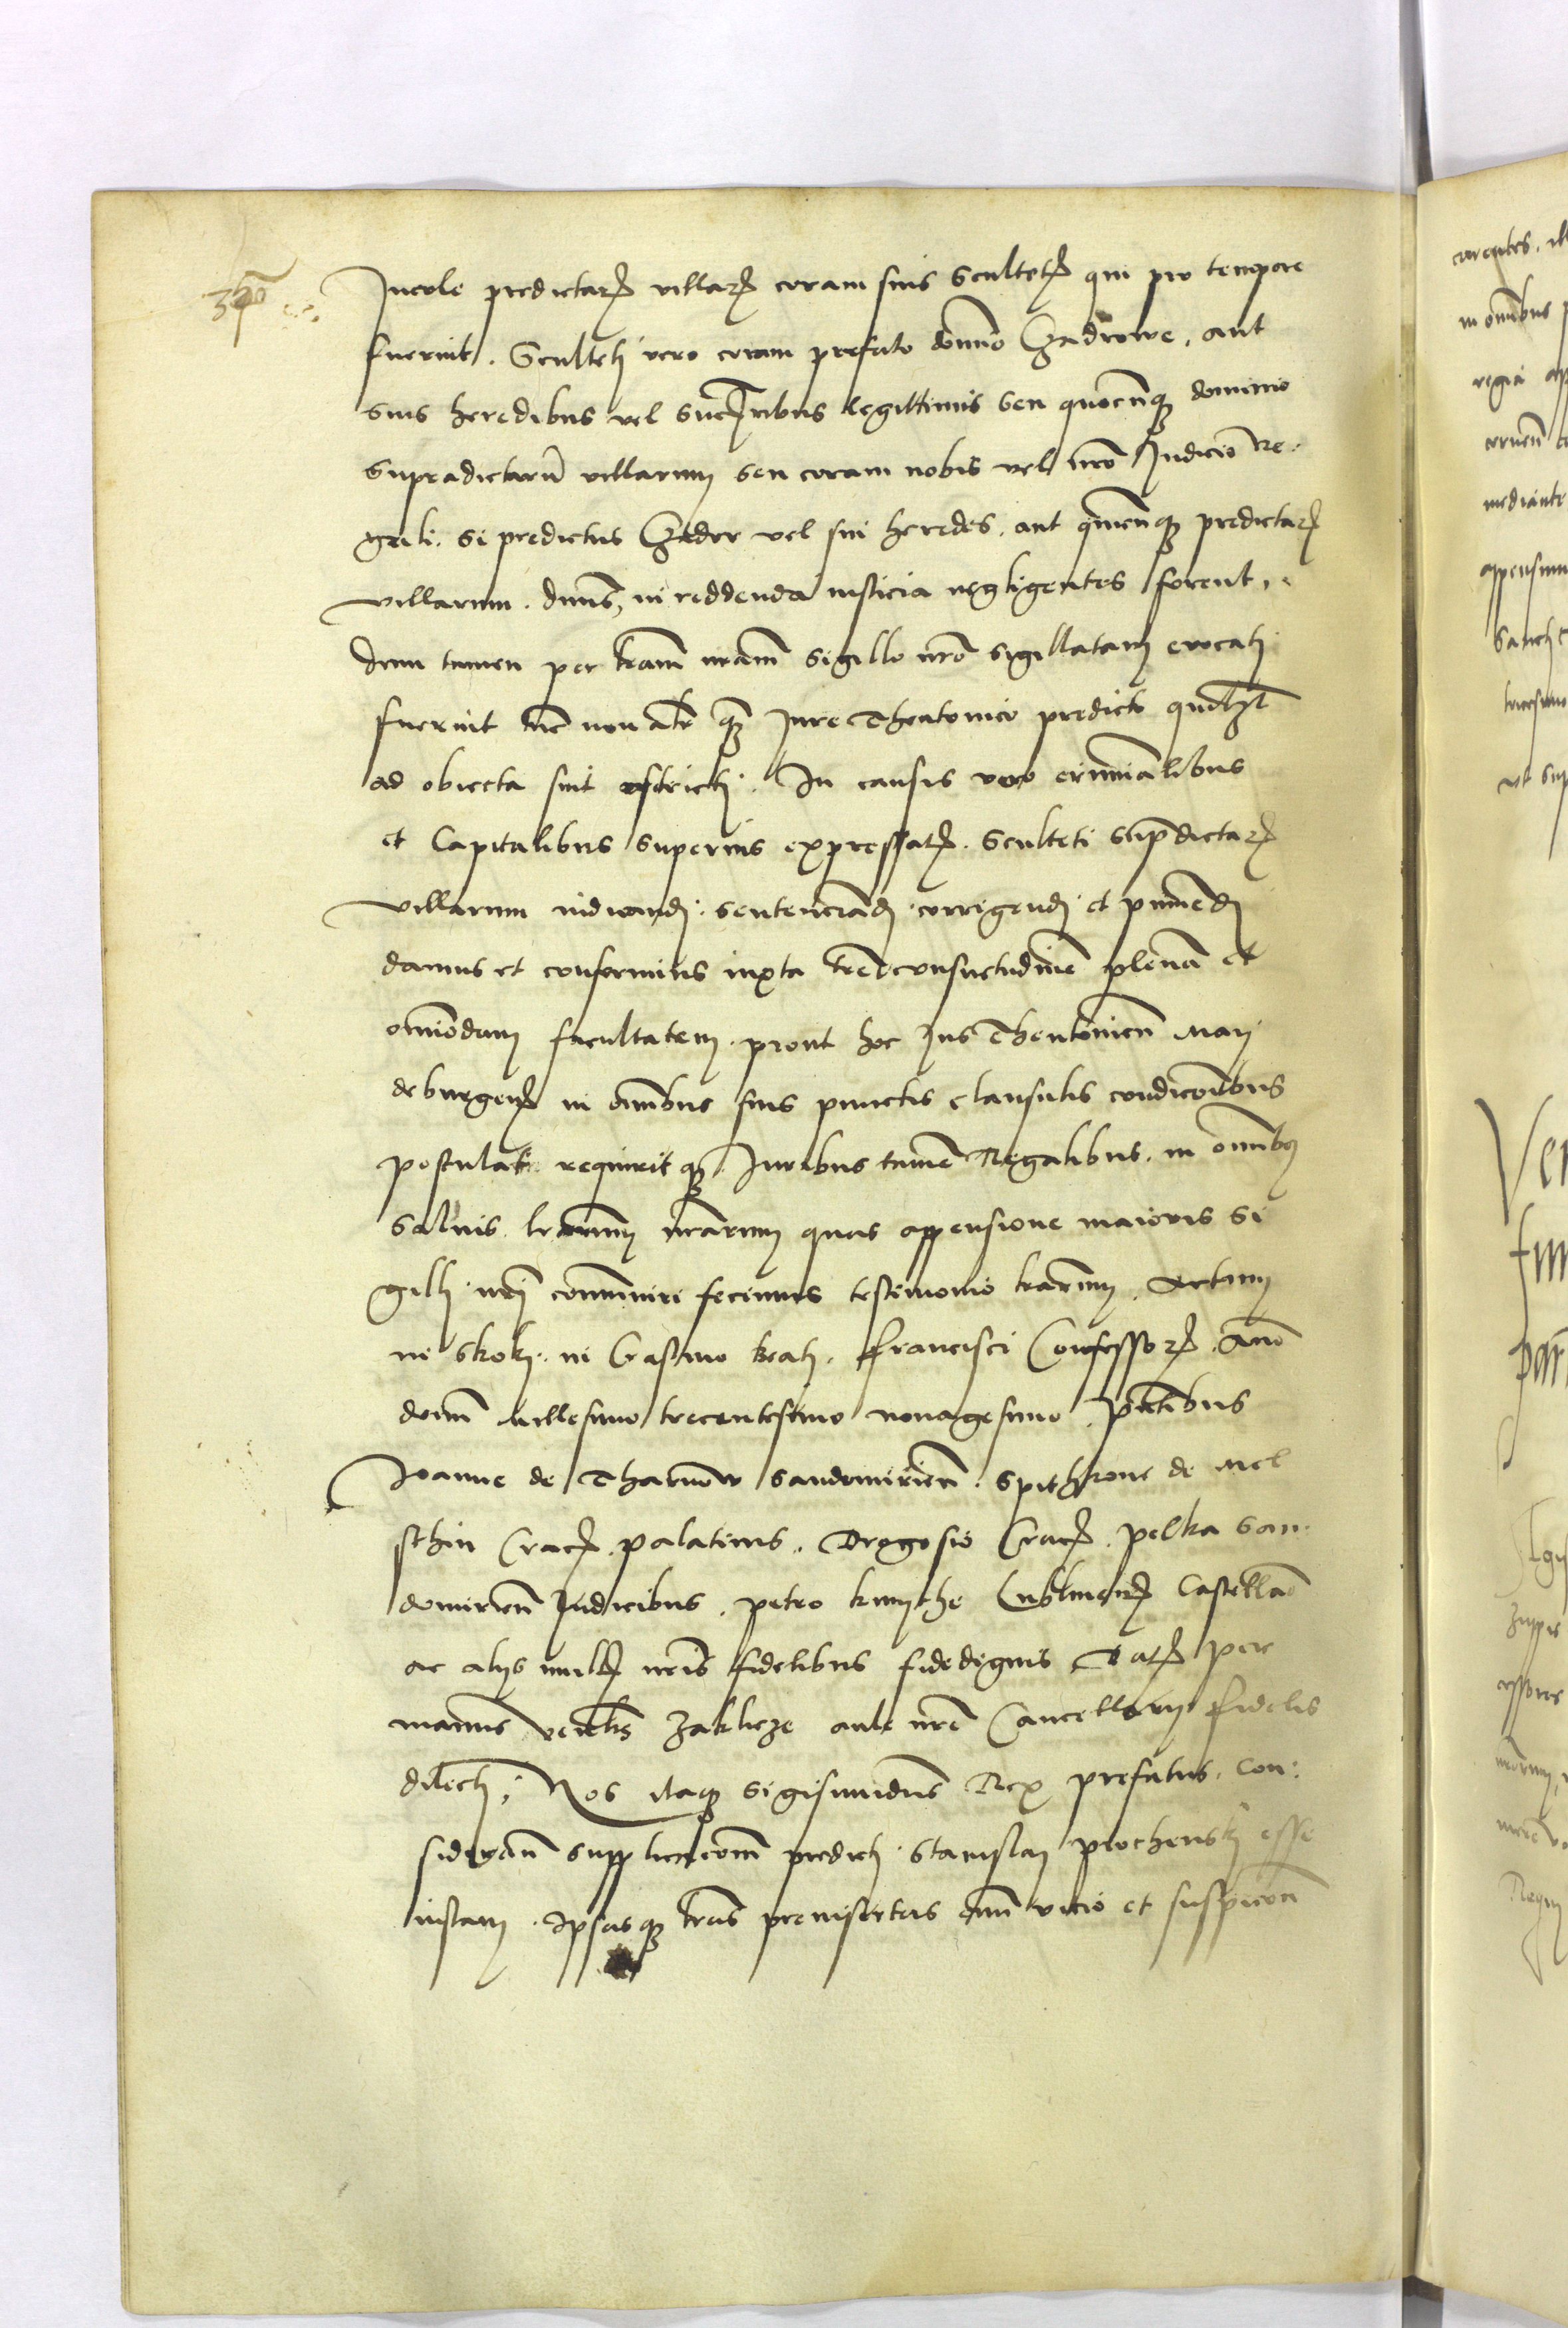 Incole predictarꝝ villarꝝ coram suis Scultetꝭ qui pro tempore
fuerint. Sculteti vero coram prefato domino Czadrowe, aut
suis heredibus vel Succꝛibus legittimis seu quocunqꝫ domino
supradictarū villarum seu coram nobis vel nr̃o Judicio Re-
gali. si predictus Czader vel sui heredes. aut quicunqꝫ predictarꝝ
villarum. dn̄us, in reddenda iusticia negligentes forent,
dum tamen per lr̃am nr̃am sigillo nr̃o sigillatam evocati
fuerint tūc non alr̃ qꝫ Jure Theutonico predicto quilꝫt
ad obiecta sint astricti. In causis vero criminalibus
et Capitalibus superius expressatꝭ. Sculteti sup̃dictarꝝ
villarum iudicandi. sentenciãdi. corrigendi et puniendi
damus et conferimus iuxta consuetudinē plenã et
om̄imodam facultatem. prout hoc Jus Theutonicū May
deburgenꝭ in om̃ibus suis punctis clausulis condicōibus
postulat requiritqꝫ. Juribus tamē Regalibus. in om̃ibꝫ
salvis. lr̃arum nr̃arum quas appensione maioris si
gilli nr̃i com̄uniri fecimus testimonio lr̃arum. Actum
in Skoki. in Crastino beati. Francisci Confessorꝭ. Anno
dom̄ millesimo trecentesimo nonagesimo. Pn̄tibus
Joanne de Tharnow Sandomirieñ. Spithkone de Mel
sthin Cracꝭ. palatinis. Drogosio Cracꝭ. pelka San-
domirieñ Judicibus. petro kmythe Lublineñꝭ Castellão
ac alijs multꝭ nr̃is fidelibus fidedignis Datꝭ per
manus Zaklicze aule nr̃e Cancellarij fidelis
dilecti. Nos itaqꝫ Sigismundus Rex prefatus. con-
siderañ supplicacom̄ predicti Stanislai prochenski esse
iustam. Ipsasqꝫ lr̃as preinsertas om̄i vicio et suspicōe